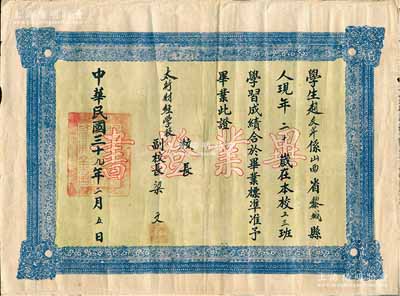 畢業證書
學生趙 係山西省黎城縣
人現年二十 歲在本校 班
學習成績合於畢業標準准予
畢業此證
太行財經學校 校長
副校長 梁文
中華民國三十 年二月五日